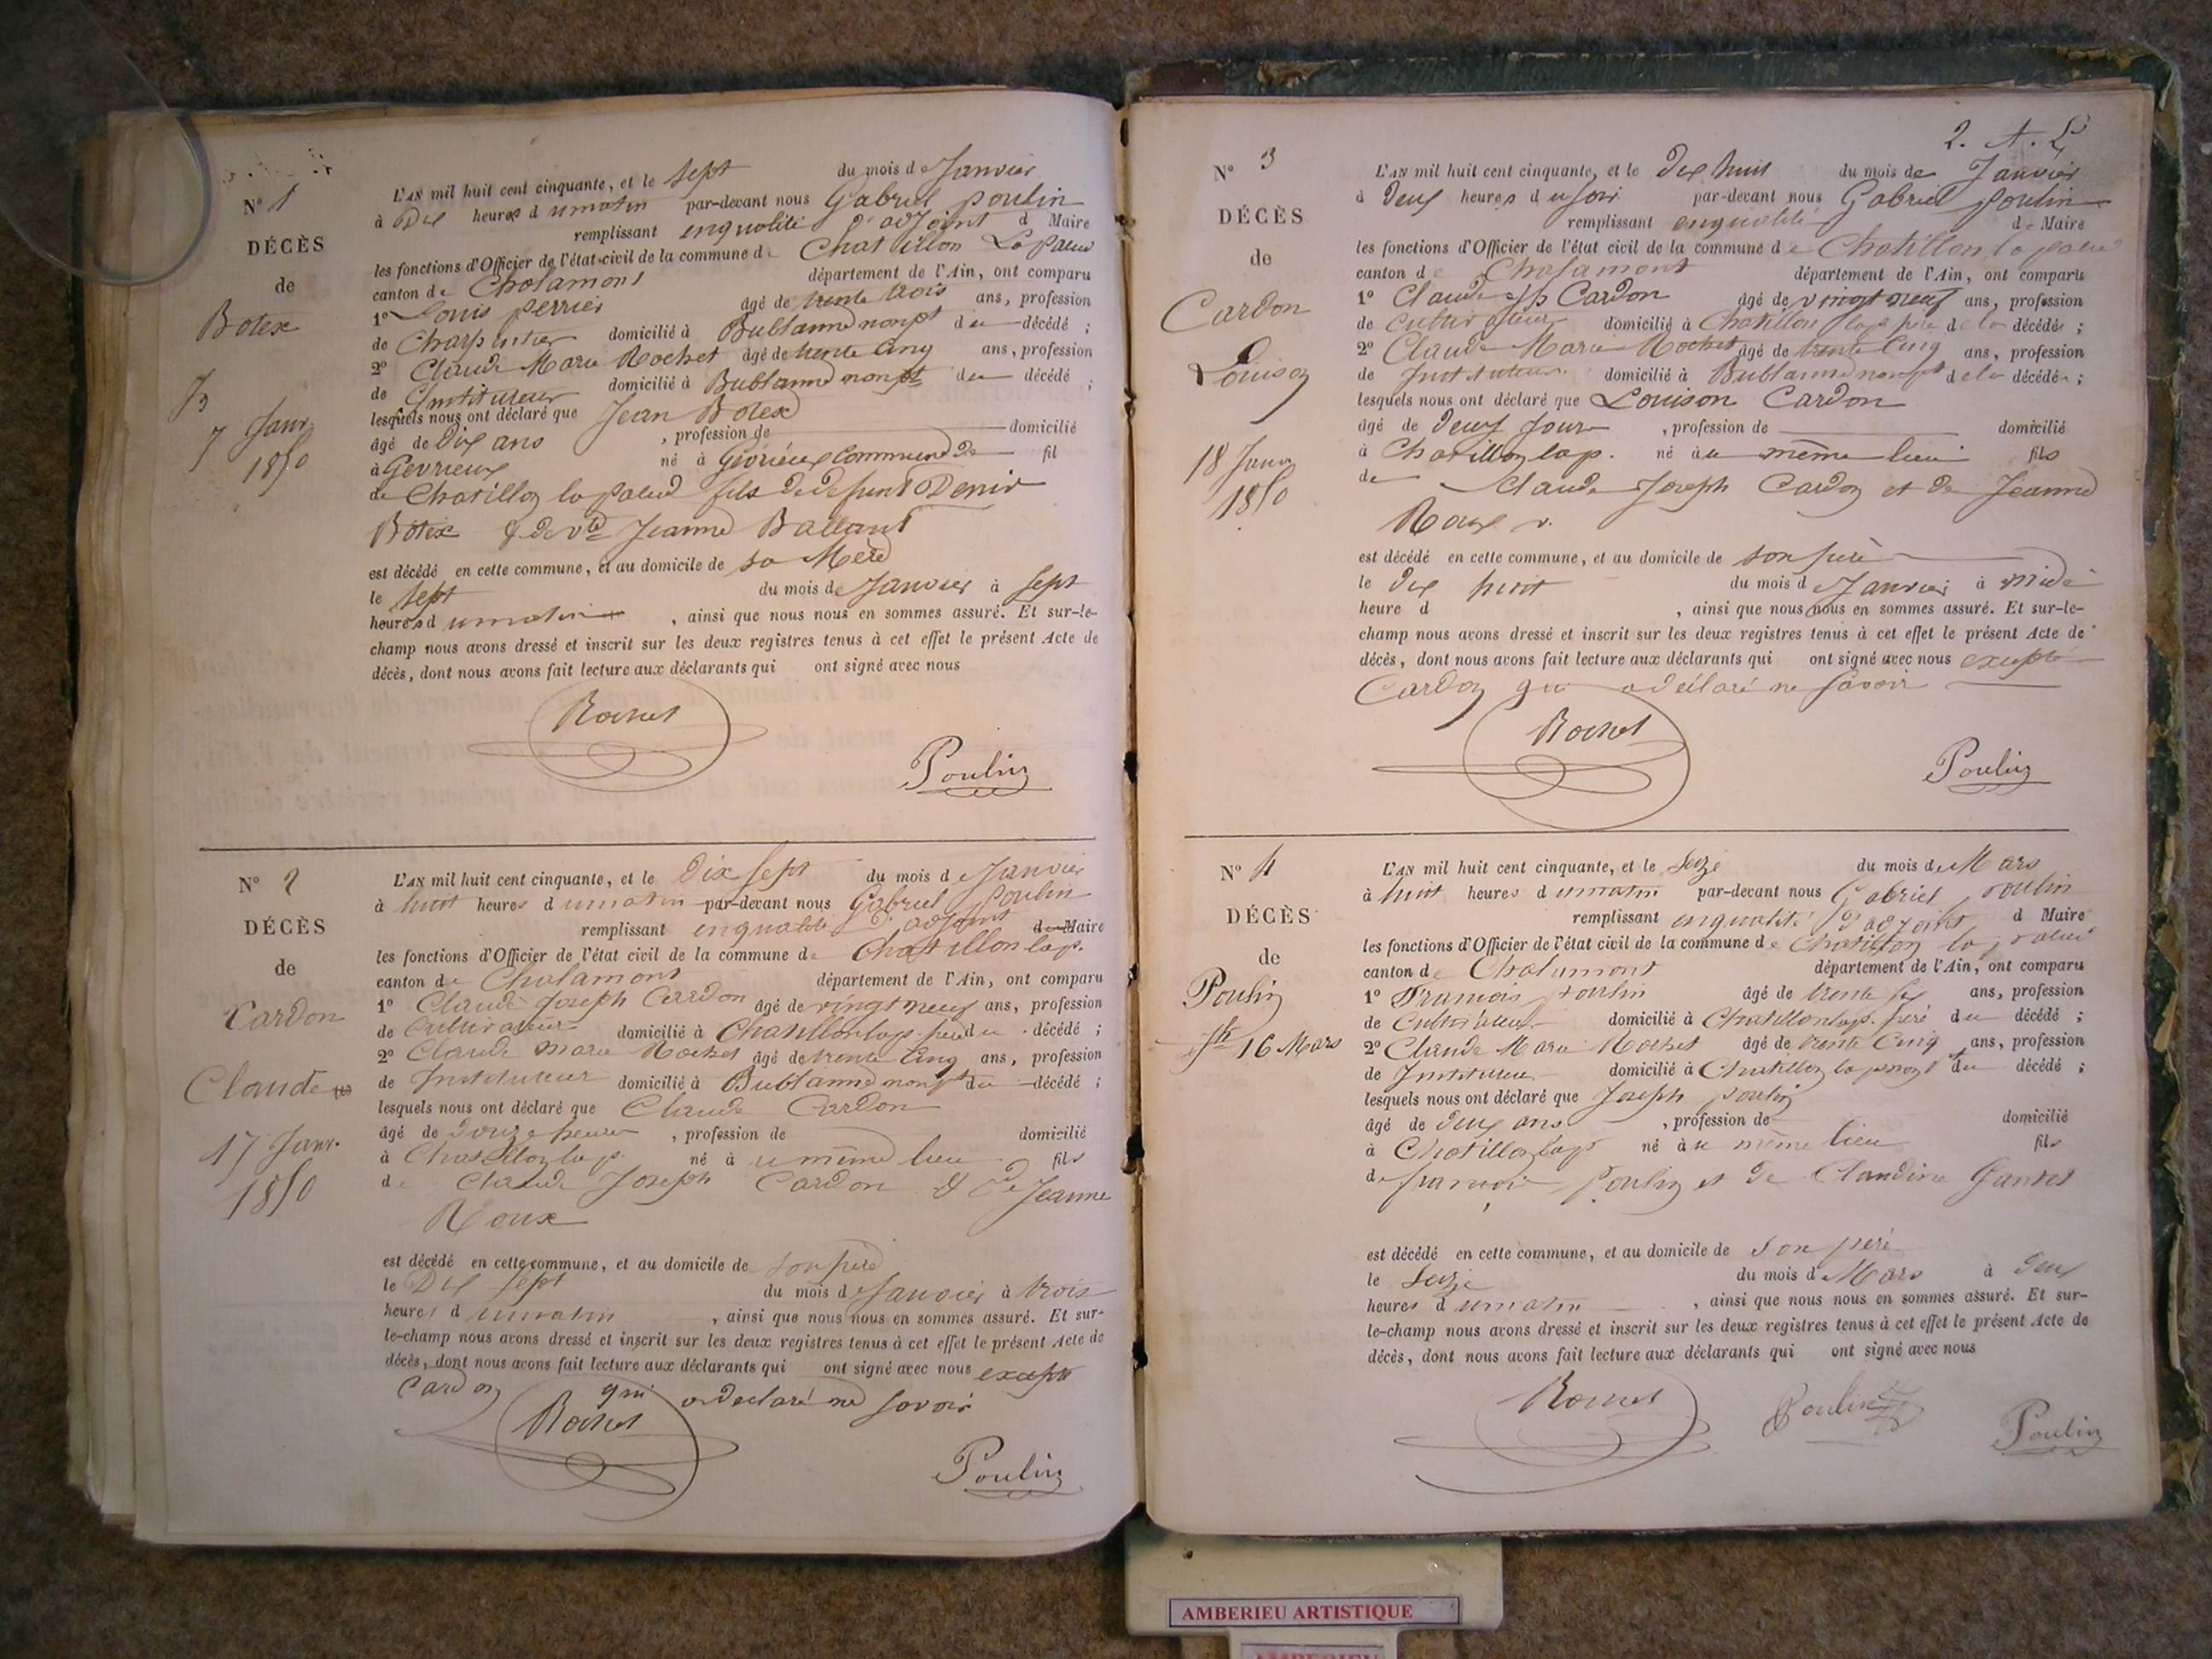 N° 1
DÉCÈS
de
Botex
Jn
7 Janv.
1850
L'AN mil huit cent cinquante, et le sept du mois de Janvier
à Dix heures d umatin par-devant nous Gabriel Poulin
remplissant enqualité d'adjoint d Maire
les fonctions d'Officier de l'état-civil de la commune de Chatillon Lapalud
canton de Chalamont département de l'Ain, ont comparu
1° Louis perrier âgé de trente trois ans, profession
de Charpentier domicilié à Bublanne nonpt du décédé ;
2° Claude Marie Rochet âgé de trente Cinq ans, profession
de Instituteur domicilié à Bublanne nonpt du décédé ;
lesquels nous ont déclaré que Jean Botex
âgé de Dix ans , profession de domicilié
à Gevrieux né à Gevrieux Commune de fil
de Chatillon la palud fils de defunt Denis
Botex & de ve Jeanne Balland
est décédé en cette commune, et au domicile de sa Mere
le sept du mois de Janvier à sept
heures d umatin , ainsi que nous nous en sommes assuré. Et sur-le-
champ nous avons dressé et inscrit sur les deux registres tenus à cet effet le présent Acte de
décès, dont nous avons fait lecture aux déclarants qui ont signé avec nous
Rochet
Poulin
N° 2
DÉCÈS
de
Cardon
Claude
17 Janv.
1850
L'AN mil huit cent cinquante, et le Dix sept du mois de Janvier
à huit heures d umatin par-devant nous Gabriel Poulin
remplissant enqualité d'adjoint de Maire
les fonctions d'Officier de l'état civil de la commune de Chatillon lap.
canton de Chalamont département de l'Ain, ont comparu
1° Claude Joseph Cardon âgé de vingt neuf ans, profession
de Cultivateur domicilié à Chatillonlap. pere du décédé ;
2° Claude Marie Rochet âgé de trente Cinq ans, profession
de Instituteur domicilié à Bublanne nonpt du décédé ;
lesquels nous ont déclaré que Claude Cardon
âgé de Douze heures , profession de domicilié
à Chatillon lap. né à u même lieu fils
de Claude Joseph Cardon & de Jeanne
Roux
est décédé en cette commune, et au domicile de son père
le Dix sept du mois de Janvier à trois
heures d umatin , ainsi que nous nous en sommes assuré. Et sur-
le-champ nous avons dressé et inscrit sur les deux registres tenus à cet effet le présent Acte de
décès, dont nous avons fait lecture aux déclarants qui ont signé avec nous excepté
Cardon qui a declaré ne savoir
Rochet
Poulin
2. A. L
N° 3
DÉCÈS
de
Cardon
Louison
18 Janv
1850
L'AN mil huit cent cinquante, et le Dix huit du mois de Janvier
à Deux heures d usoir par-devant nous Gabriel Poulin
remplissant enqualité de Maire
les fonctions d'Officier de l'état civil de la commune de Chatillon la palud
canton de Chalamont département de l'Ain, ont comparu
1° Claude Jph Cardon âgé de vingt neuf ans, profession
de Cultivateur domicilié à Chatillon lap père de la décédée ;
2° Claude Marie Rochet âgé de trente Cinq ans, profession
de Instituteur domicilié à Bublanne nonpt de la décédée ;
lesquels nous ont déclaré que Louison Cardon
âgé de Deux Jours , profession de domicilié
à Chatillon lap. né à u même lieu fils
de Claude Joseph Cardon et de Jeanne
Roux
est décédé en cette commune, et au domicile de son père
le dix huit du mois de Janvier à midi
heure d , ainsi que nous nous en sommes assuré. Et sur-le-
champ nous avons dressé et inscrit sur les deux registres tenus à cet effet le présent Acte de
décès, dont nous avons fait lecture aux déclarants qui ont signé avec nous excepté
Cardon qui a déclaré ne savoir
Rochet
Poulin
N° 4
DÉCÈS
de
Poulin
Jph 16 Mars
L'AN mil huit cent cinquante, et le Seize du mois de Mars
à huit heures d umatin par-devant nous Gabriel Poulin
remplissant enqualité d'adjoint d Maire
les fonctions d'Officier de l'état civil de la commune de Chatillon la palud
canton de Chalamont département de l'Ain, ont comparu
1° Francois Poulin âgé de trente six ans, profession
de Cultivateur domicilié à Chatillonlap. père du décédé ;
2° Claude Marie Rochet âgé de trente Cinq ans, profession
de Instituteur domicilié à Chatillon lap nonpt du décédé ;
lesquels nous ont déclaré que Joseph Poulin
âgé de Deux ans , profession de domicilié
à Chatillon lap né à u même lieu fils
de francois Poulin et de Claudine
est décédé en cette commune, et au domicile de Son père
le Seize du mois de Mars à Deux
heures d umatin , ainsi que nous nous en sommes assuré. Et sur-
le-champ nous avons dressé et inscrit sur les deux registres tenus à cet effet le présent Acte de
décès, dont nous avons fait lecture aux déclarants qui ont signé avec nous
Rochet
Poulin
Poulin
AMBERIEU ARTISTIQUE
AMBERIEU